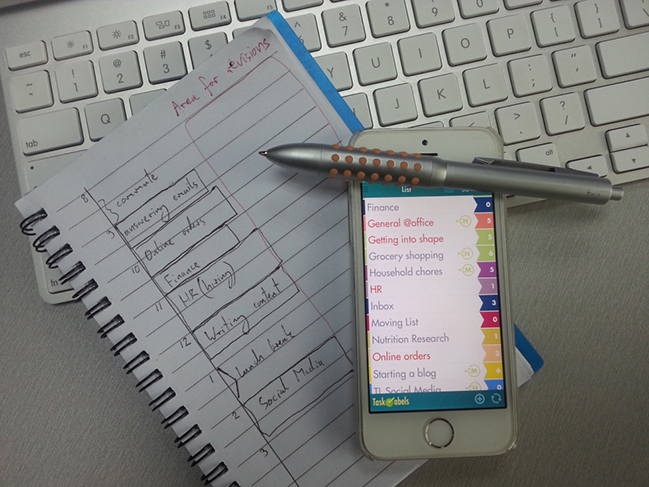 Area for revisions
8
commute
9
answering emails
Online orders
10
Finance
11
HR (hiring)
Writing content
12
Lunch break
1
Social Media
2
3
List
Finance 0
General @office 5
Getting into shape 5
Grocery shopping 6
Household chores 5
HR 1
Inbox 3
Moving List 0
Nutrition Research 1
Online orders 3
Starting a blog 6
TL Social Media
Task Labels
esc F1 F2 F3 F4
~ ! 1 @ 2 # 3 $ & 7 * 8 ( 9 ) 0
tab Q U I O P
J K L
M
fn